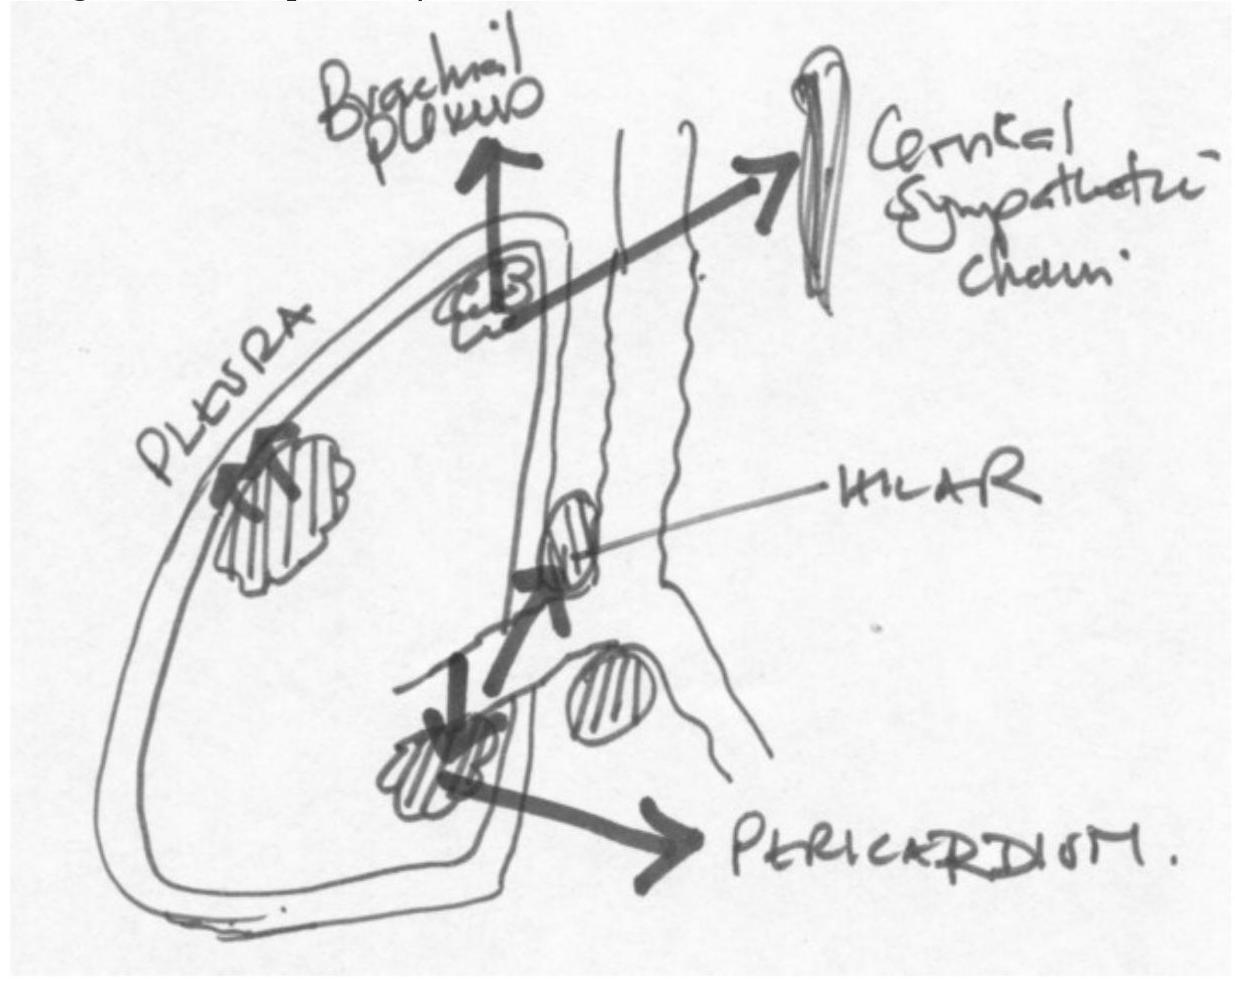 Brachial
plexus
Cervical
Sympathetic
Chain
PLEURA
HILAR
PERICARDIUM.